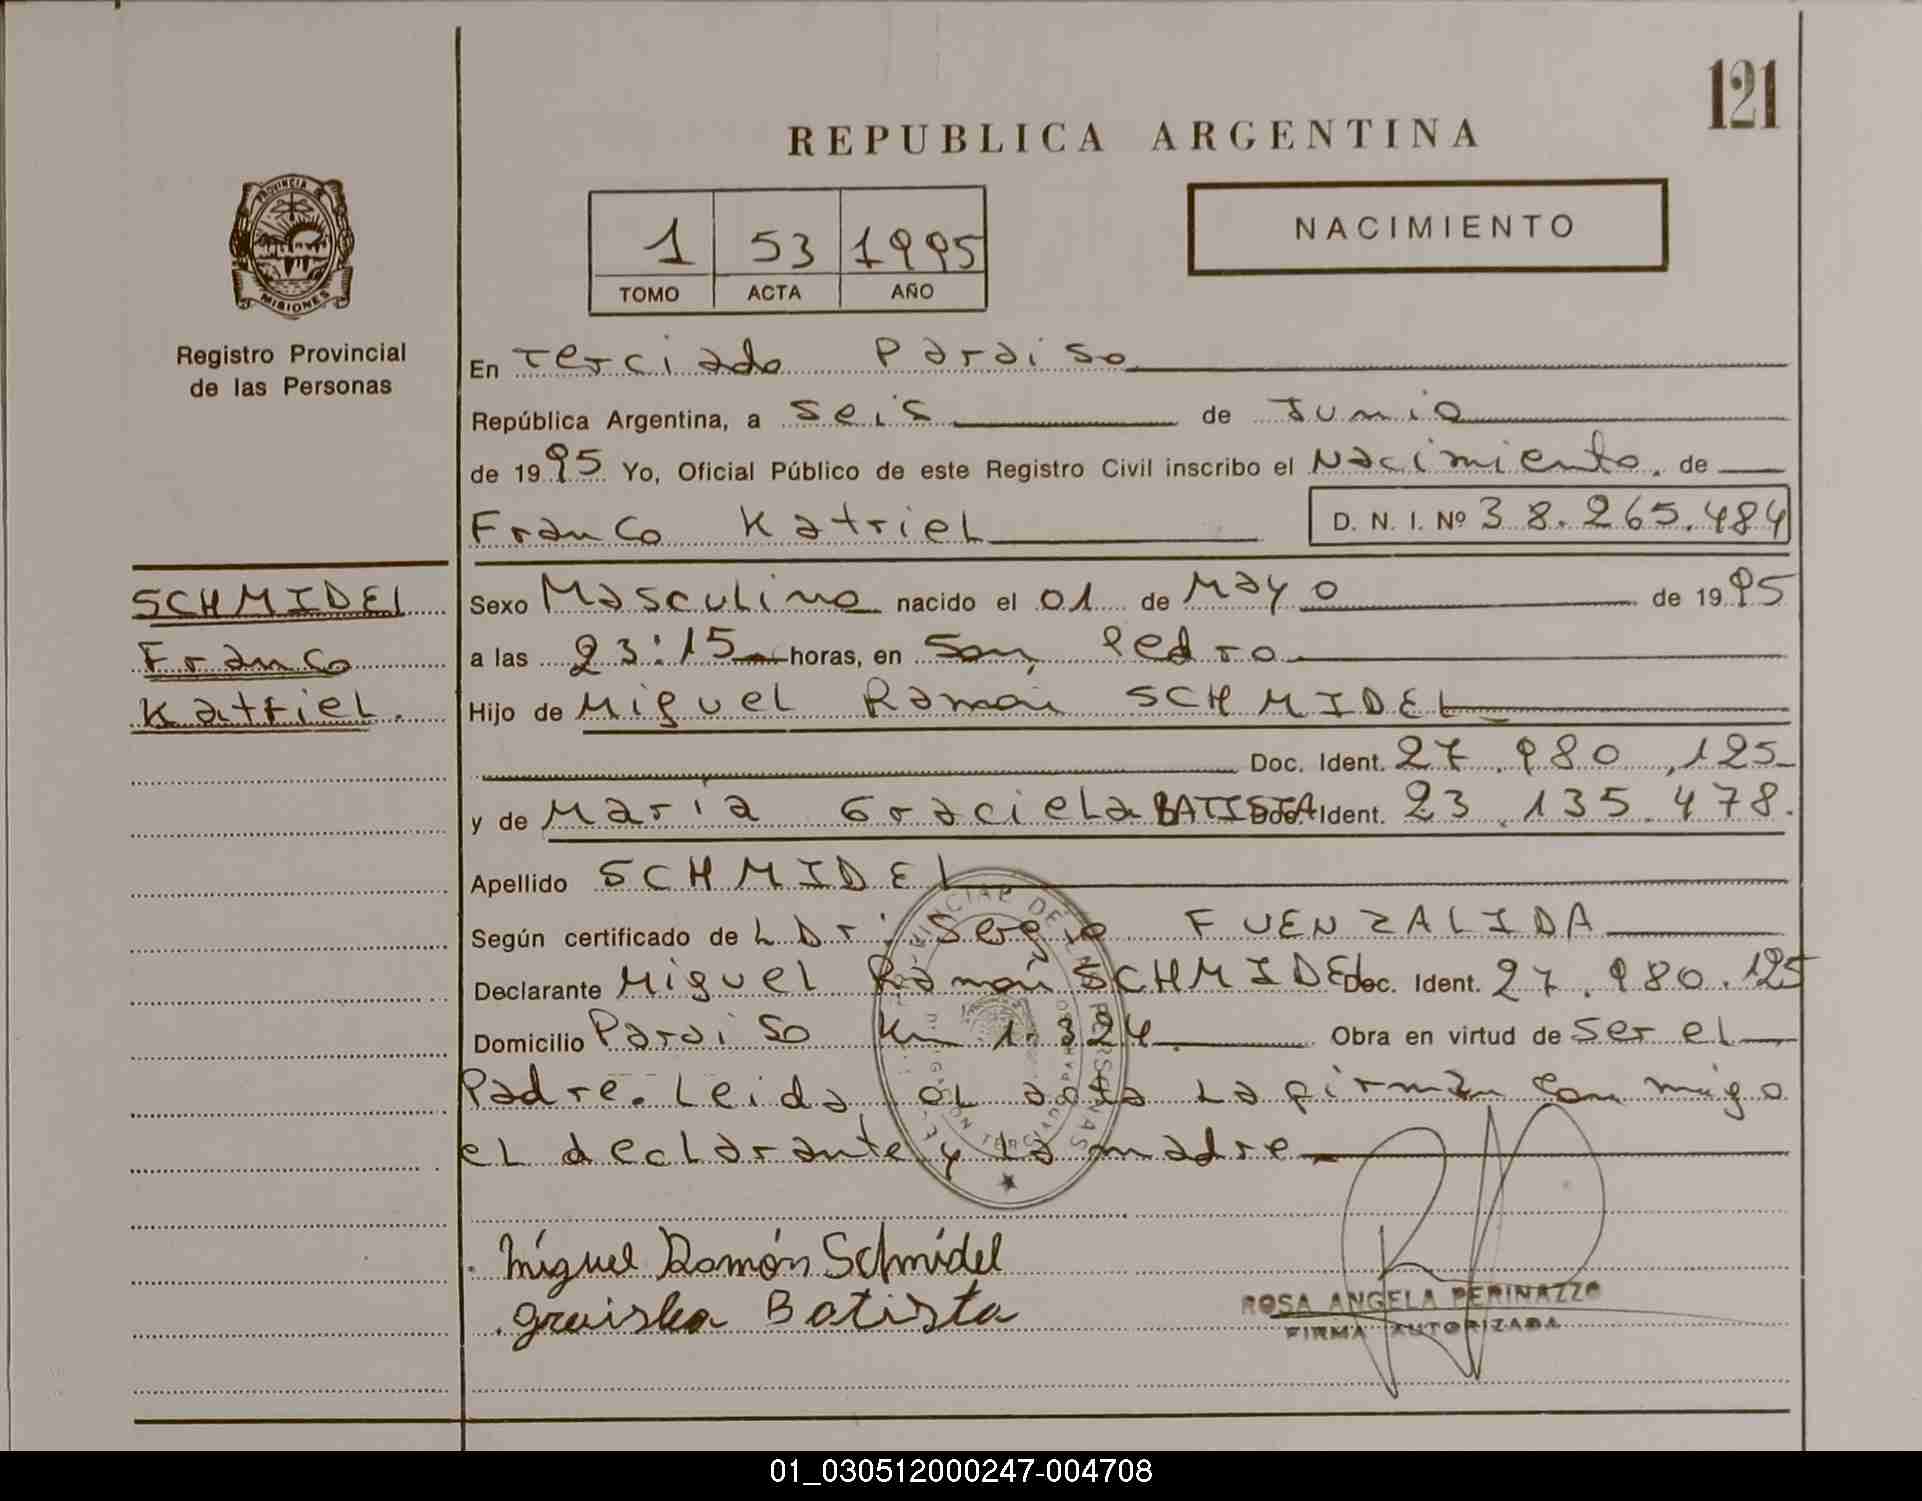 121
REPUBLICA ARGENTINA
PROVINCIA DE
MISIONES
Registro Provincial
de las Personas
1 53 1995
TOMO ACTA AÑO
NACIMIENTO
En Terciado Paraiso
República Argentina, a seis de Junio
de 1995 Yo, Oficial Público de este Registro Civil inscribo el Nacimiento. de
Franco Katriel D. N. I. Nº 38.265.484
SCHMIDEL
Franco
Katriel.
Sexo Masculino nacido el 01 de Mayo de 1995
a las 23:15 horas, en San Pedro
Hijo de Miguel Ramón SCHMIDEL
Doc. Ident. 27.980.125
y de María Graciela BATISTA Doc. Ident. 23.135.478.
Apellido SCHMIDEL
Según certificado de L Dr. Sergio FUENZALIDA
Declarante Miguel Ramón SCHMIDEL Doc. Ident. 27.980.125
Domicilio Paraiso Km 1.324. Obra en virtud de ser el
Padre. Leida el acta La firman con migo
el declarante y La madre
Miguel Ramón Schmidel
Batista
ROSA ANGELA PERINAZZO
FIRMA AUTORIZADA
01_030512000247-004708